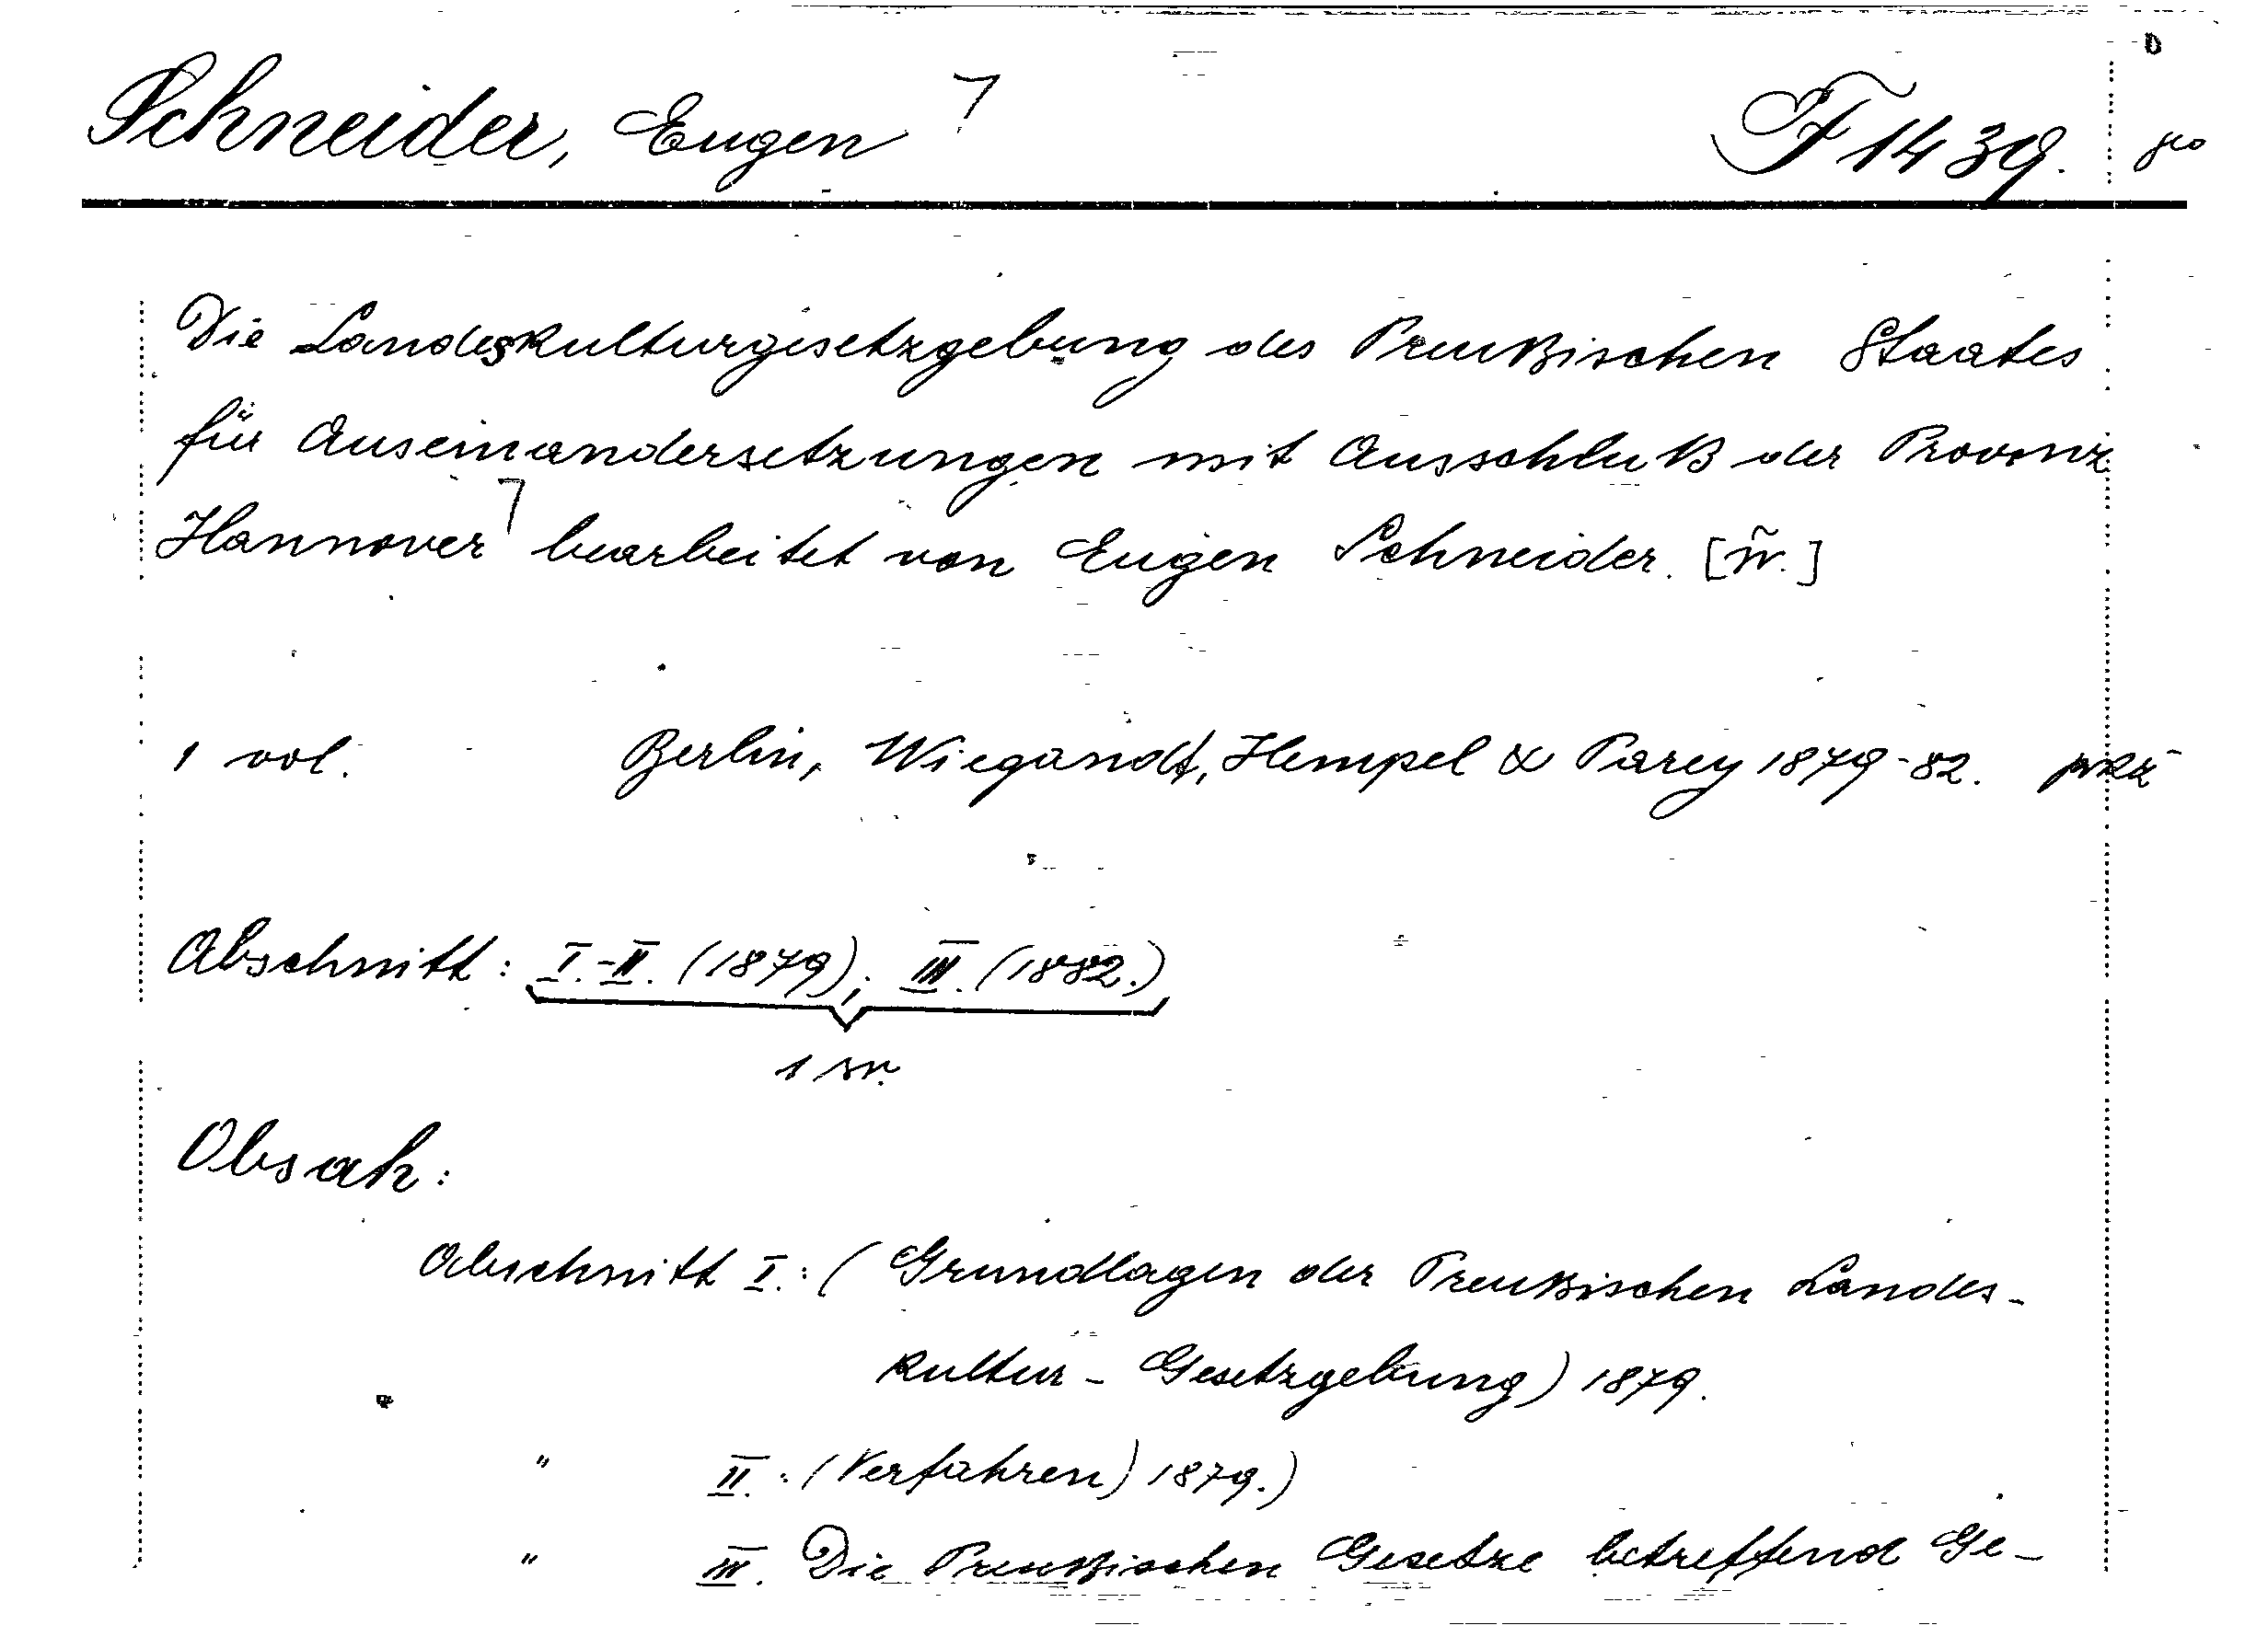 Schneider, Eugen ⌝ F 1439.
Die Landeskulturgesetzgebung des Preußischen Staates
für Auseinandersetzungen mit Ausschluß der Provinz
Hannover ⌝ bearbeitet von Eugen Schneider.
1 vol. Berlin, Wiegandt, Hempel & Parey 1879-82.
Abschnitt: I.-II. (1879); III. (1882.)
Obsah:
Abschnitt I.: (Grundlagen der Preußischen Landes-
kultur - Gesetzgebung) 1879.
" II.: (Verfahren) 1879.)
" III. Die Preußischen Gesetze betreffend Ge-